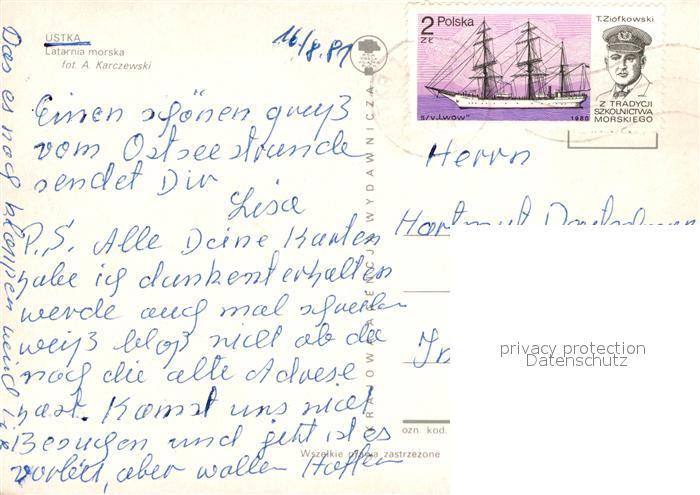 USTKA
Latarnia morska
fot. A. Karczewski
16/8.81
2 ZŁ Polska
T. Ziołkowski
s/v „Lwów"
1980
Z TRADYCJI
SZKOLNICTWA
MORSKIEGO
Einen schönen gruß
vom Ostseestrande
sendet Dir
Lisa
P.S. Alle Deine Karten
habe ich dankent erhalten
werde auch mal schreiben
weiß bloß nicht ob du
noch die alte Adrese
hast. Komst uns nicht
Besuchen und jetzt ist es
vorbei, aber wollen Hoffen
Das es noch klappen wird
Herrn
Hartmut
KRAJOWA AGENCJA WYDAWNICZA
ozn. kod.
Wszelkie prawa zastrzeżone
privacy protection
Datenschutz